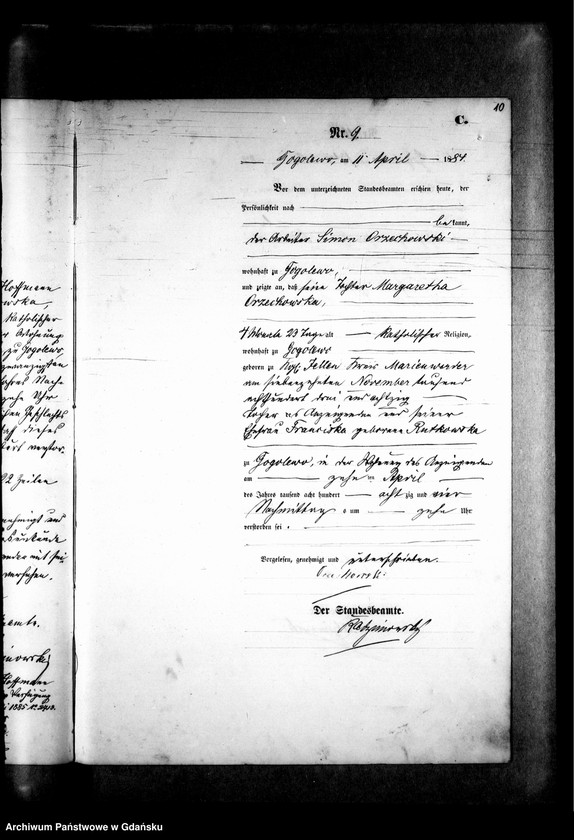 10
C.
Nr. 9.
Gogolewo, am 11 April 1884.
Vor dem unterzeichneten Standesbeamten erschien heute, der
Persönlichkeit nach
bekannt,
der Arbeiter Simon Orzechowski
wohnhaft zu Gogolewo,
und zeigte an, daß seine Tochter Margaretha
Orzechowska,
4 Monate 23 Tage alt katholischer Religion,
wohnhaft zu Gogolewo
geboren zu Jellen Kreis Marienwerder
am siebenzehnten November tausend
achthundert drei und achtzig
Tochter des Anzeigenden und seiner
Ehefrau Franciska geborene Rutkowska
zu Gogolewo, in der Wohnung des Anzeigenden
am zehn ten April
des Jahres tausend acht hundert achtzig und vier
Nachmittag s um zehn Uhr
verstorben sei.
Vorgelesen, genehmigt und unterschrieben.
Der Standesbeamte.
Hoffmann
wska,
katholischer
zu Gogolewo,
Uhr
22 Zeilen
genehmigt und
Hoffmann
Verfügung
1885
Archiwum Państwowe w Gdańsku